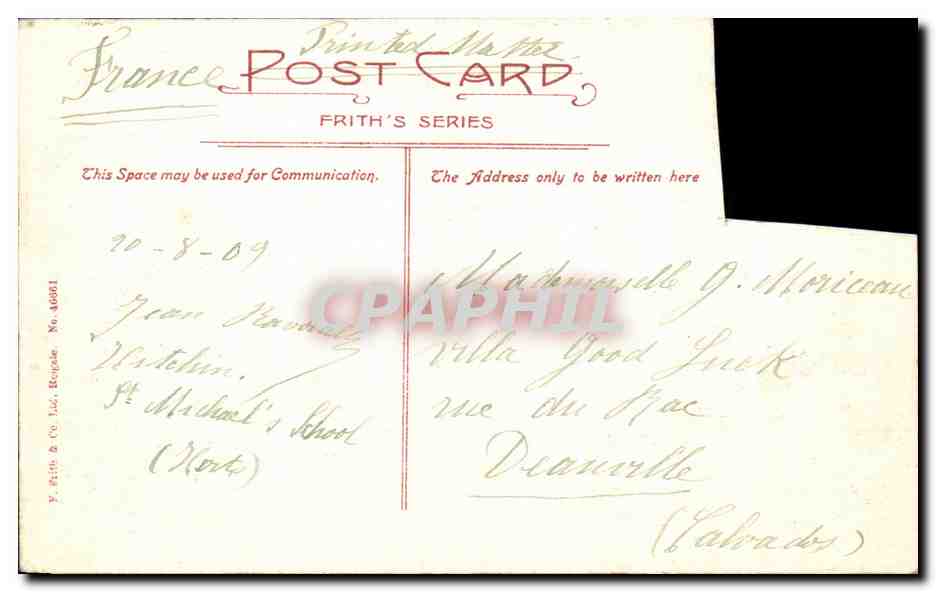 Printed Matter
France
POST CARD
FRITH'S SERIES
This Space may be used for Communication.
The Address only to be written here
20-8-09
Jean
Hitchin.
St Michael's School
(Herts)
Mademoiselle G. Moriceau
Villa Good Luck
rue du Bac
Deauville
(Calvados)
F. Frith & Co. Ltd., Reigate. No. 46661
CPAPHIL